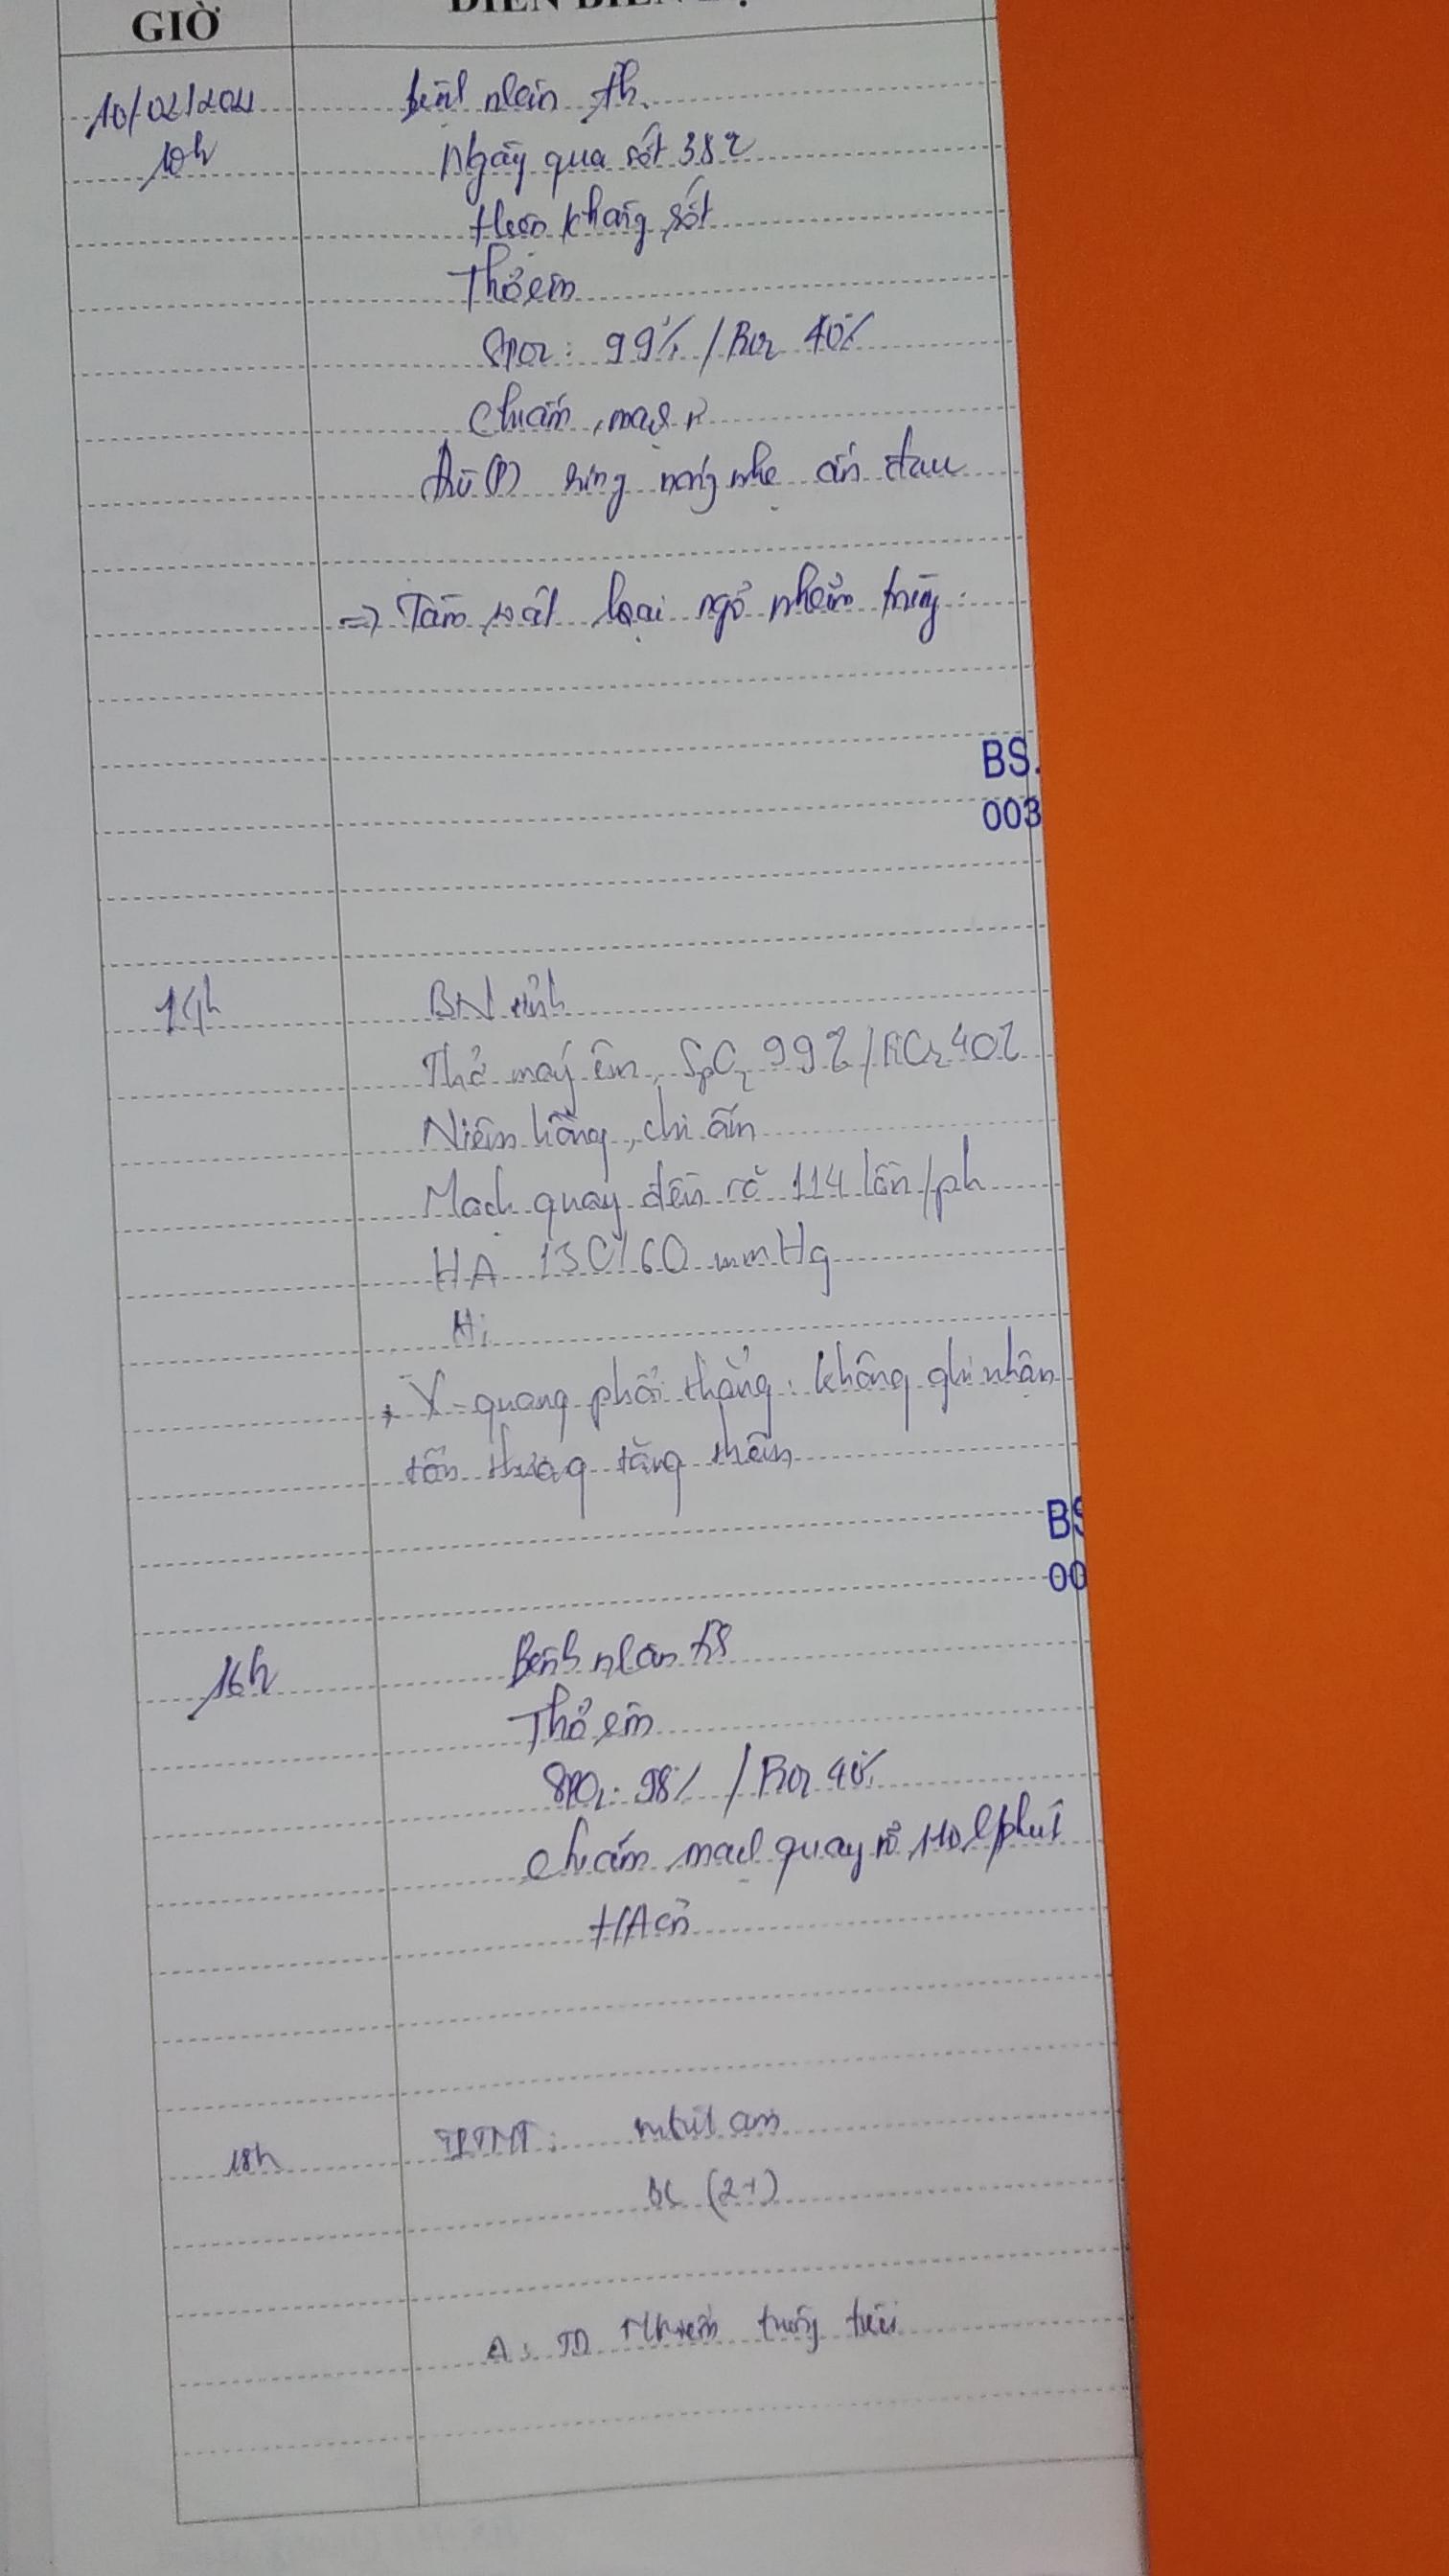 GIỜ
10/02/2021 bệnh nhân
10h Ngày qua sốt 38
không sốt
Thở êm
SPO2: 99% / 40%
Chi ấm, mạch rõ
nóng nhẹ ấn đau
=> Tầm soát loại ngõ nhiễm trùng.
BS.
003
14h BN tỉnh
Thở máy êm, SpO2 99% / 40%
Niêm hồng, chi ấm
Mạch quay đều rõ 114 lần/ph
HA 130/60 mmHg
X-quang phổi thẳng: không ghi nhận
tổn thương tăng thêm
BS
00
16h Bệnh nhân
Thở êm
SPO2: 98% / 40%
chi ấm, mạch quay rõ 110 l/phút
HA
18h
BC (2+)
A: TD Nhiễm trùng tiểu